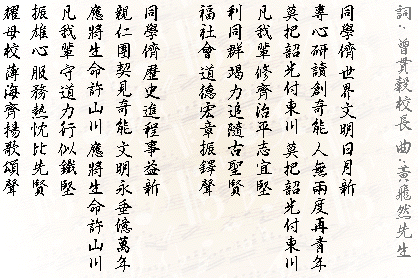 詞：曾貫毅校長 曲：黃飛然先生
同學儕世界文明日月新
專心研讀創奇能人無兩度再青年
莫把韶光付東川 莫把韶光付東川
凡我輩修齊治平志宜堅
利同群竭力追隨古聖賢
福社會道德宏章振鐸聲
同學儕歷史進程事益新
親仁團契見奇能文明永垂億萬年
應將生命許山川 應將生命許山川
凡我輩守道力行似鐵堅
振雄心服務熱忱比先賢
耀母校薄海齊揚歌頌聲